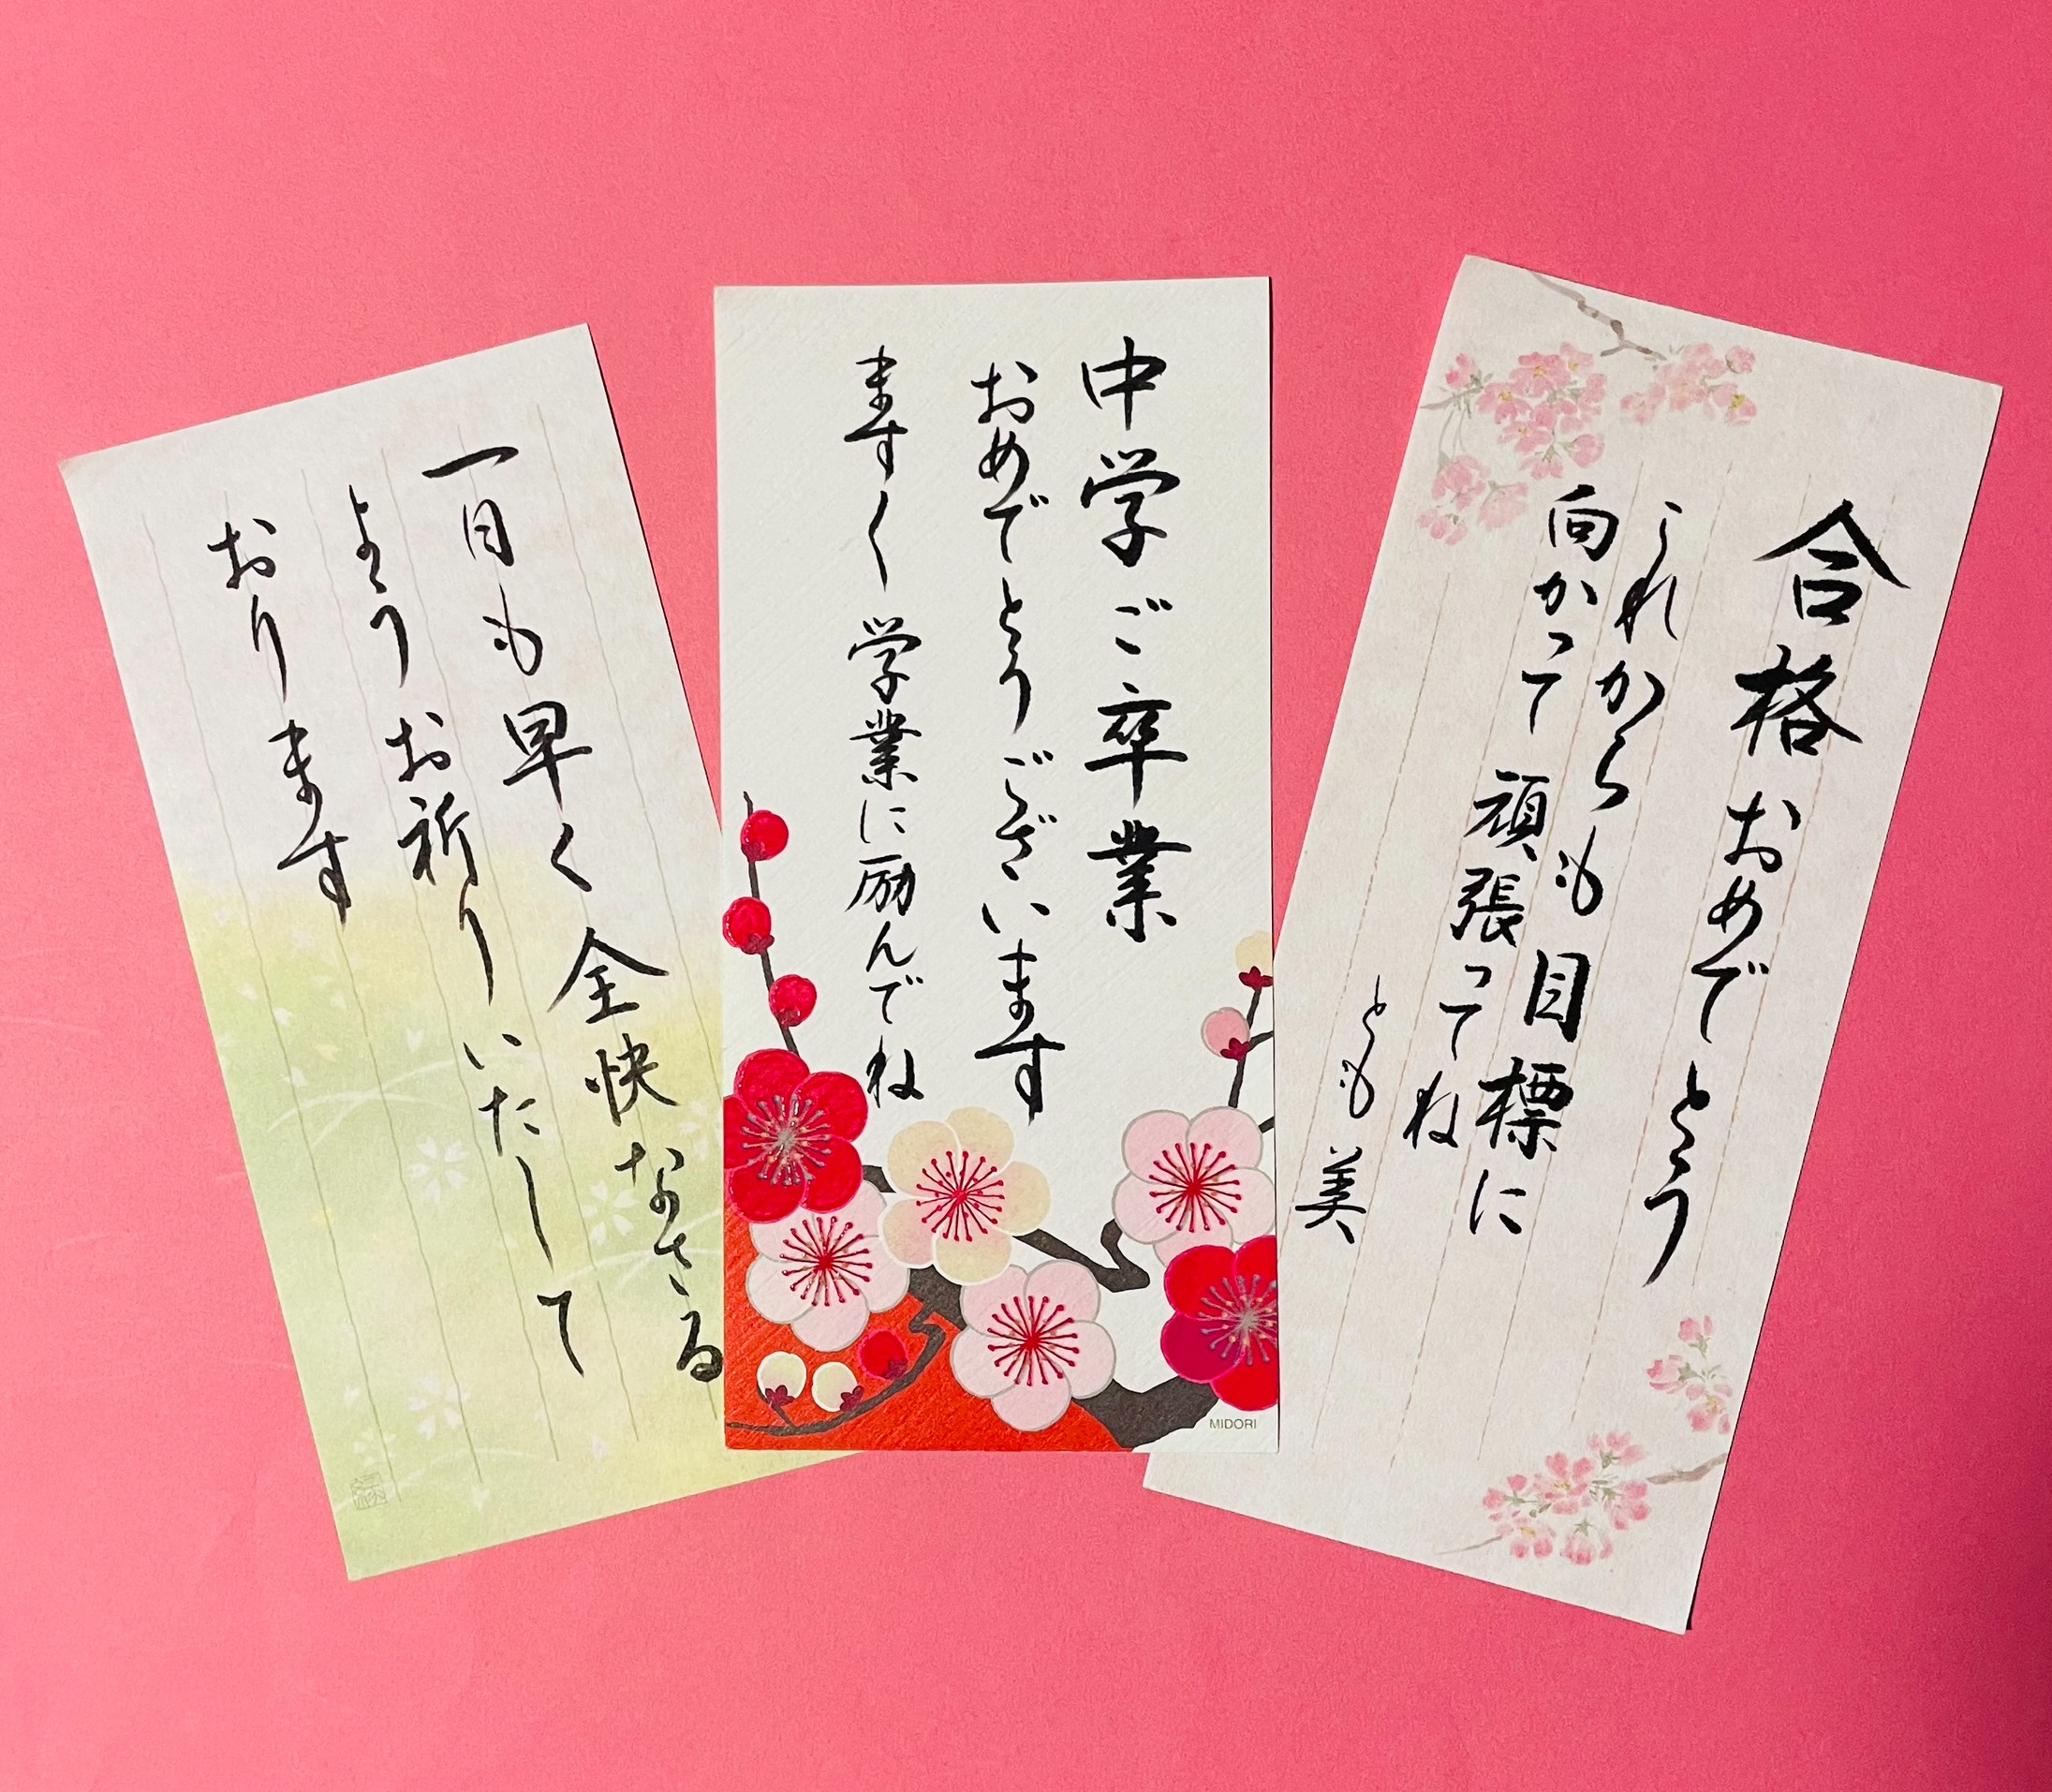 合格おめでとう
これからも目標に
向かって頑張ってね
とも美
中学ご卒業
おめでとうございます
ますく学業に励んでね
MIDORI
一日も早く全快なさる
ようお祈りいたして
おります